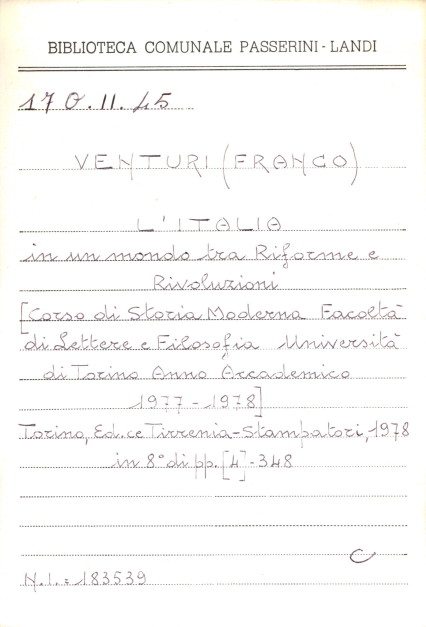 BIBLIOTECA COMUNALE PASSERINI-LANDI
170.II.45
VENTURI (FRANCO)
L'ITALIA
in un mondo tra Riforme e
Rivoluzioni
[Corso di Storia Moderna Facoltà
di Lettere e Filosofia Università
di Torino Anno Accademico
1977-1978]
Torino, Ed.ce Tirrenia-Stampatori, 1978
in 8° di pp. [4]-348
C
N.I.: 183539